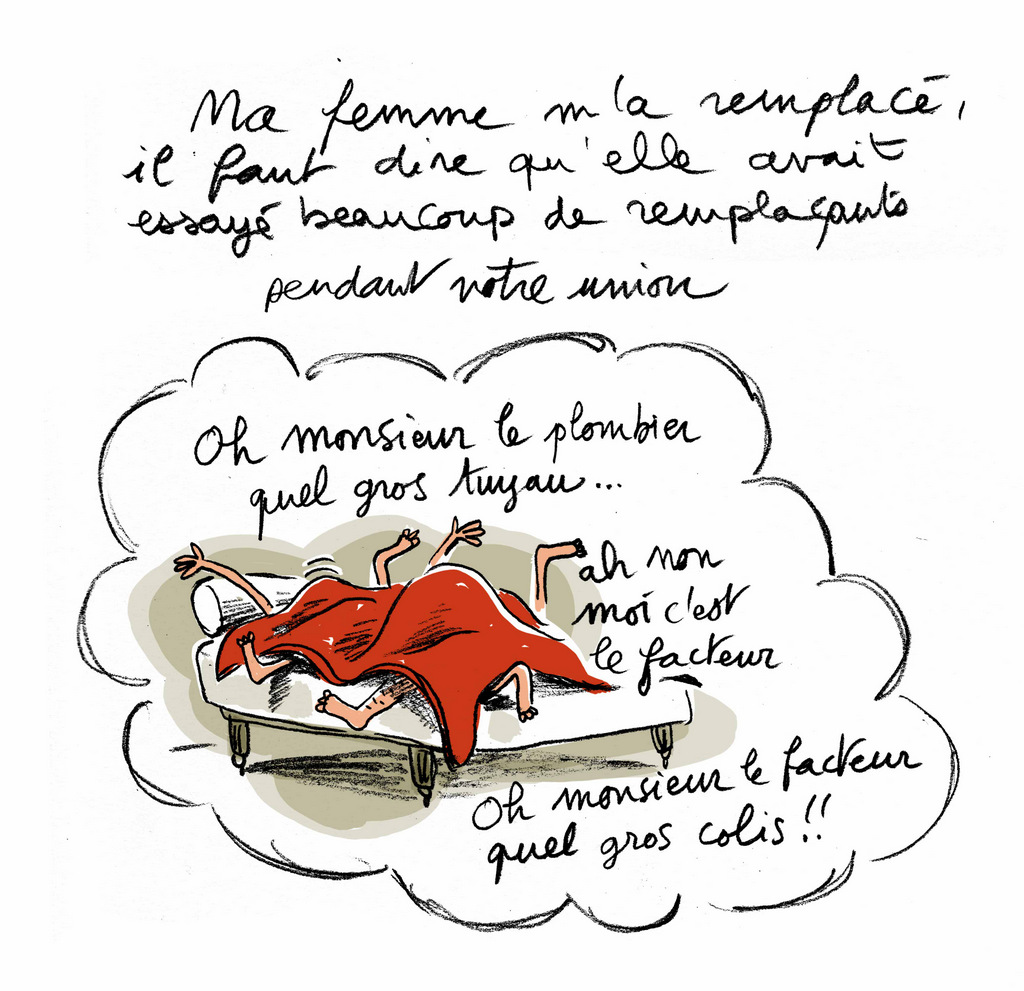 Ma femme m'a remplacé,
il faut dire qu'elle avait
essayé beaucoup de remplaçants
pendant notre union
Oh monsieur le plombier
quel gros tuyau...
ah non
moi c'est
le facteur
Oh monsieur le facteur
quel gros colis !!